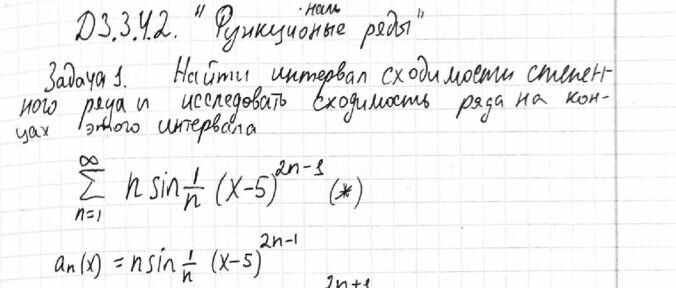 ДЗ.3.4.2. "Функциональные ряды"
Задача 1. Найти интервал сходимости степен-
ного ряда и исследовать сходимость ряда на кон-
цах этого интервала
∞
∑ n sin 1/n (x-5)^{2n-1} (*)
n=1
a_n(x) = n sin 1/n (x-5)^{2n-1}
2n+1